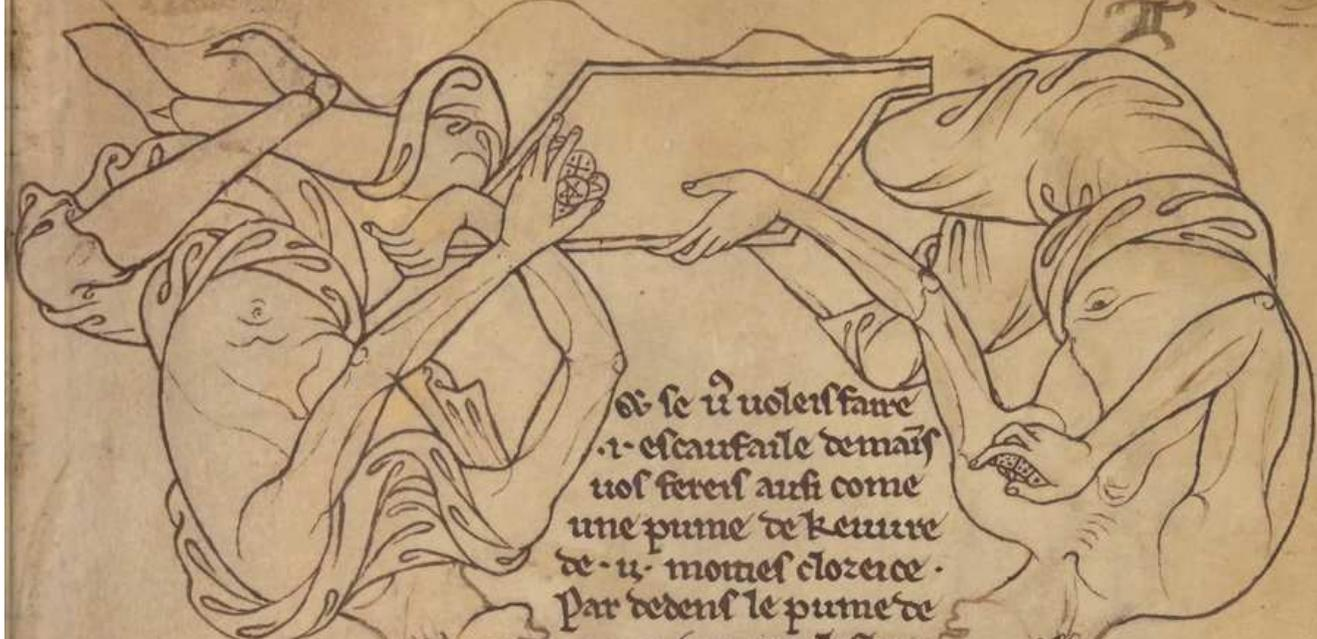 & se uͦ uoleis faire
.i. escaufaile demaīs
uos fereis ausi come
une pume de keuure
de .ii. moities clozeice .
Par dedens le pume de